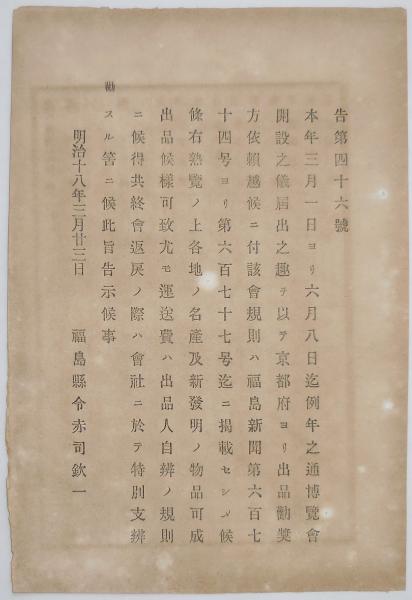 告第四十六號
本年三月一日ヨリ六月八日迄例年之通博覽會
開設之儀屆出之趣ヲ以テ京都府ヨリ出品勸奬
方依賴越候ニ付該會規則ハ福島新聞第六百七
十四号ヨリ第六百七十七号迄ニ揭載セシメ候
條右熟覽ノ上各地ノ名產及新發明ノ物品可成
出品候樣可致尤モ運送費ハ出品人自辨ノ規則
ニ候得共終會返戾ノ際ハ會社ニ於テ特別支辨
スル筈ニ候此旨告示候事
明治十八年三月廿三日
福島縣令赤司欽一
勸